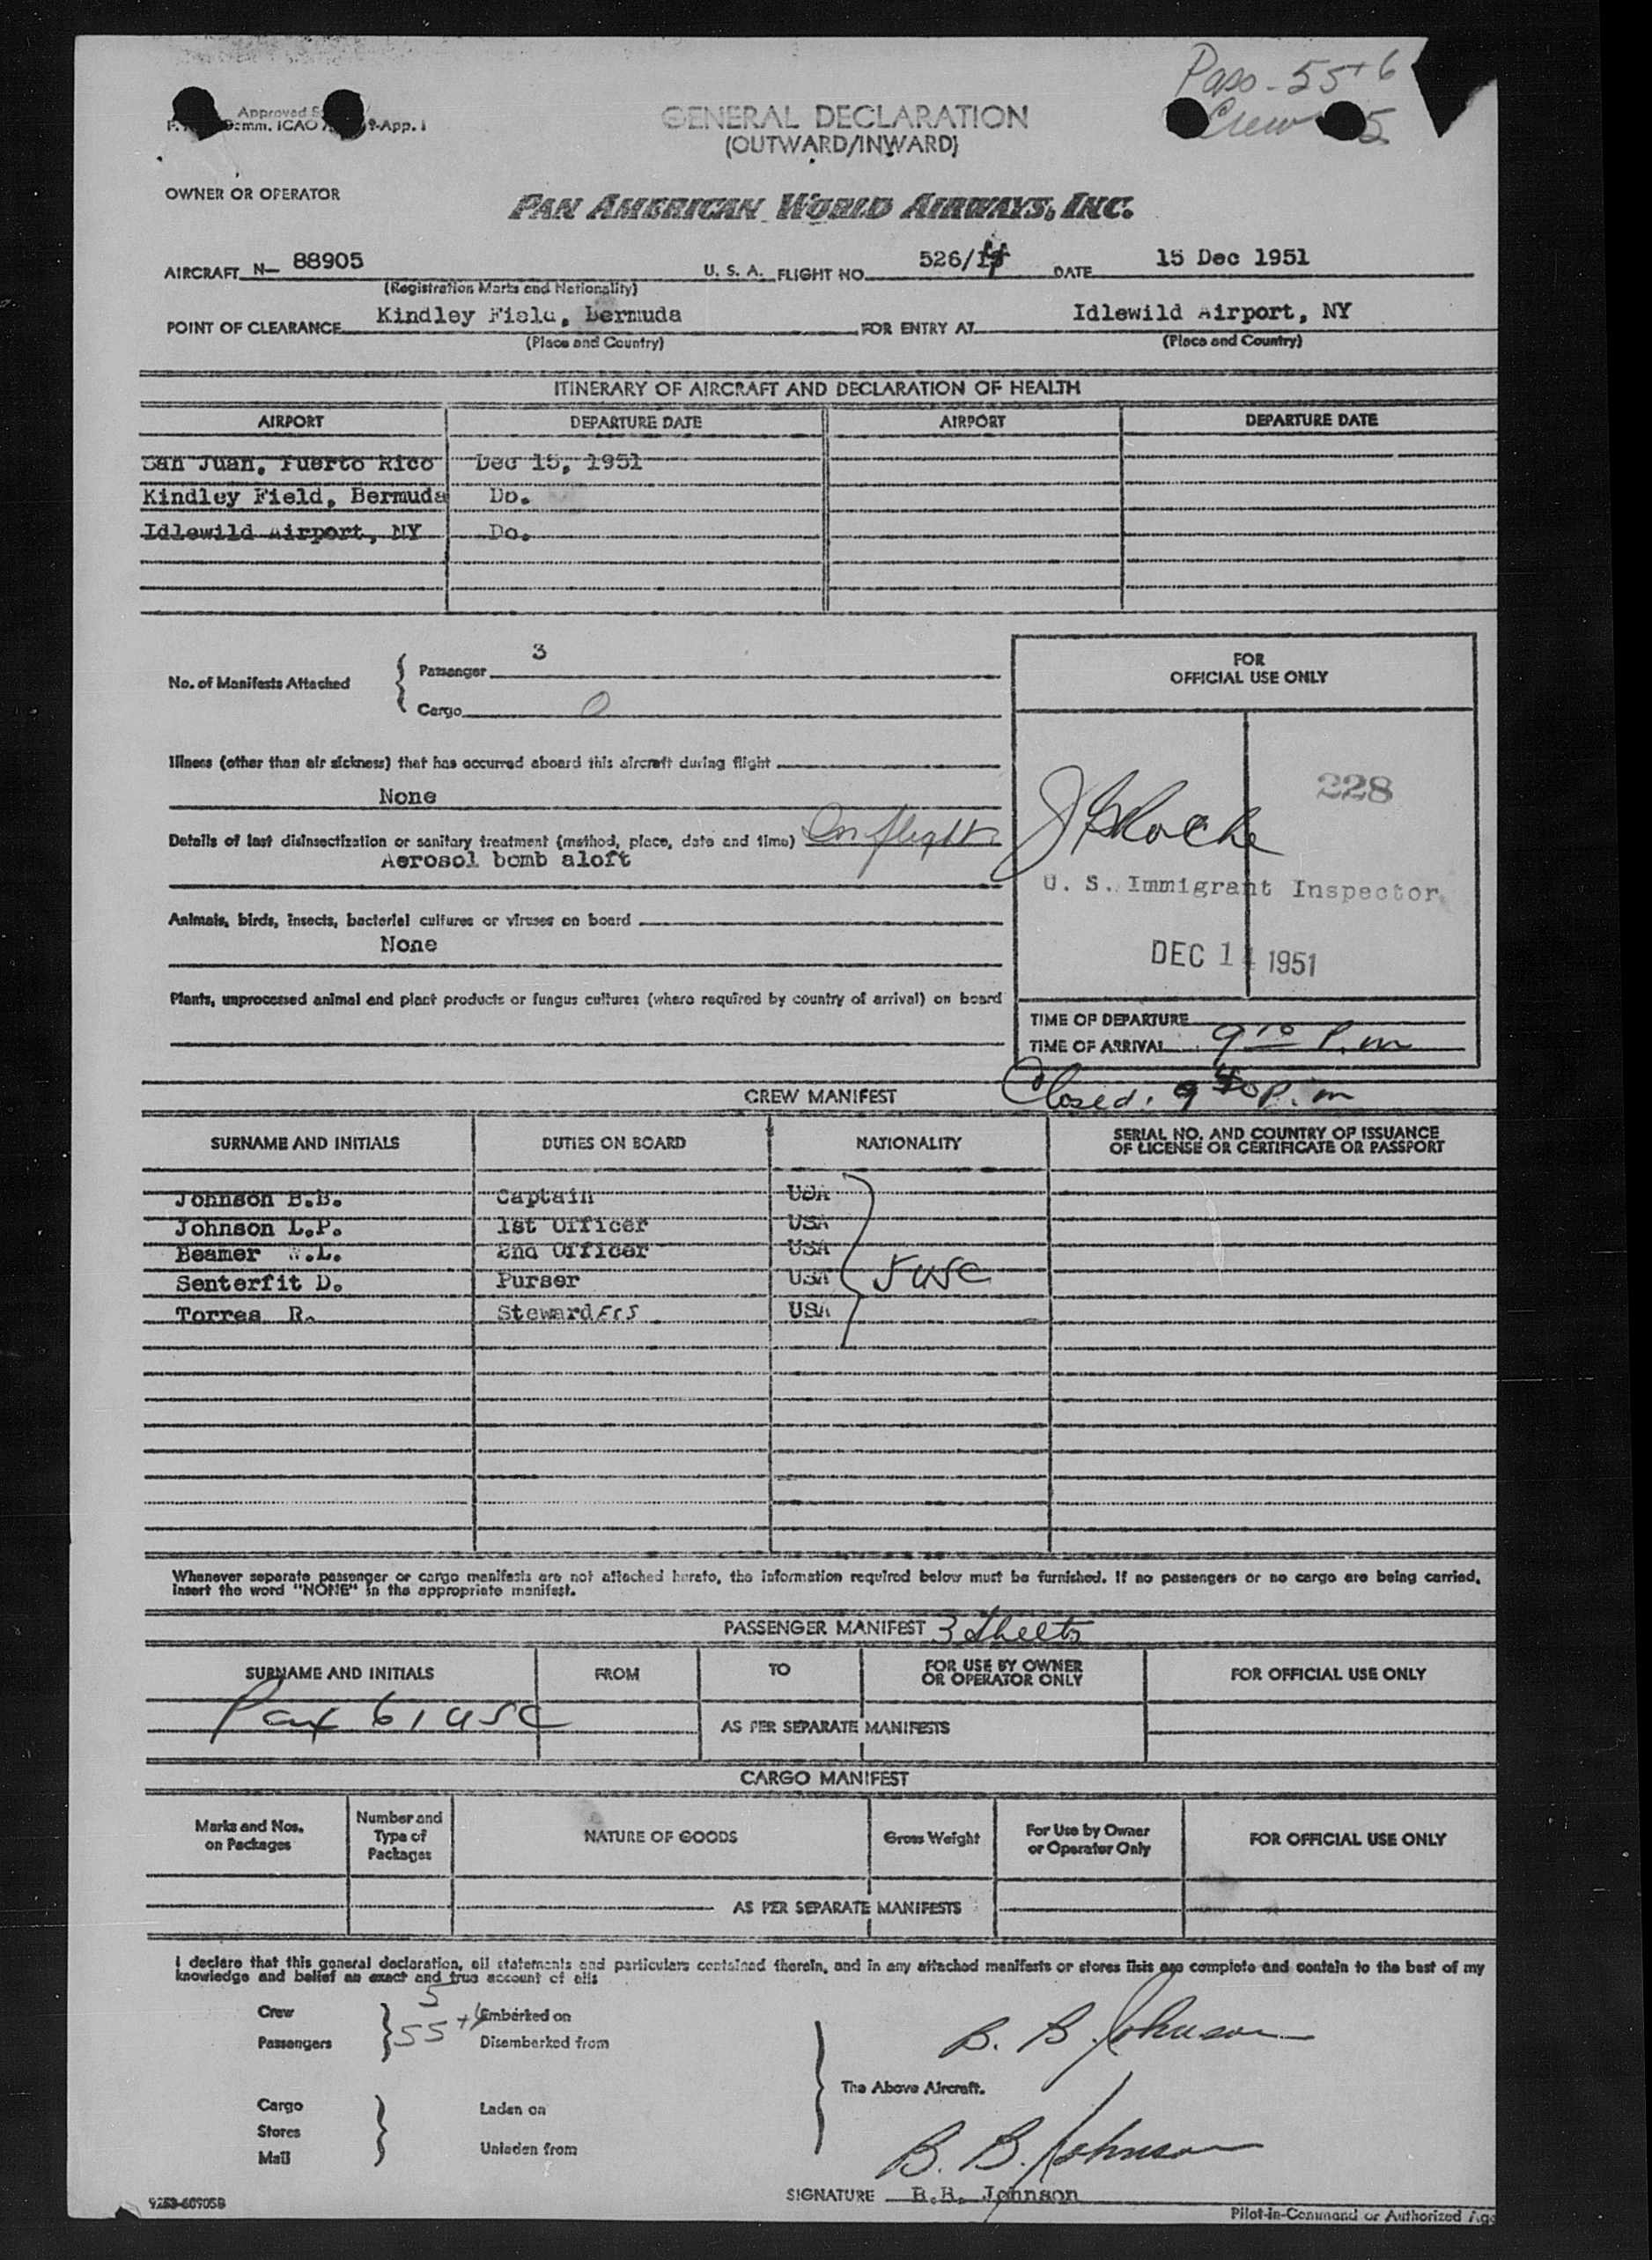 Pass - 55+6
Crew 5
Approved
Comm. ICAO 9-App. 1
GENERAL DECLARATION
(OUTWARD/INWARD)
OWNER OR OPERATOR
PAN AMERICAN WORLD AIRWAYS, INC.
AIRCRAFT N- 88905 U. S. A. FLIGHT NO. 526/14 DATE 15 Dec 1951
(Registration Marks and Nationality)
POINT OF CLEARANCE Kindley Field, Bermuda FOR ENTRY AT Idlewild Airport, NY
(Place and Country) (Place and Country)
ITINERARY OF AIRCRAFT AND DECLARATION OF HEALTH
AIRPORT DEPARTURE DATE AIRPORT DEPARTURE DATE
San Juan, Puerto Rico Dec 15, 1951
Kindley Field, Bermuda Do.
Idlewild Airport, NY Do.
No. of Manifests Attached
Passenger 3
Cargo 0
FOR
OFFICIAL USE ONLY
Illness (other than air sickness) that has occurred aboard this aircraft during flight
None
228
Details of last disinsectization or sanitary treatment (method, place, date and time) In flight
Aerosol bomb aloft
Roche
U. S. Immigrant Inspector
Animals, birds, insects, bacterial cultures or viruses on board
None
DEC 14 1951
Plants, unprocessed animal and plant products or fungus cultures (where required by country of arrival) on board
TIME OF DEPARTURE
TIME OF ARRIVAL 9 10 P.m
Closed. 9 40 P.m
CREW MANIFEST
SURNAME AND INITIALS DUTIES ON BOARD NATIONALITY SERIAL NO. AND COUNTRY OF ISSUANCE
OF LICENSE OR CERTIFICATE OR PASSPORT
Johnson B.B. Captain USA
Johnson L.P. 1st Officer USA
Beamer W.L. 2nd Officer USA
Senterfit D. Purser USA 5 USC
Torres R. Stewardess USA
Whenever separate passenger or cargo manifests are not attached hereto, the information required below must be furnished. If no passengers or no cargo are being carried,
insert the word "NONE" in the appropriate manifest.
PASSENGER MANIFEST 3 Sheets
SURNAME AND INITIALS FROM TO FOR USE BY OWNER
OR OPERATOR ONLY FOR OFFICIAL USE ONLY
Pax 61 USC
AS PER SEPARATE MANIFESTS
CARGO MANIFEST
Marks and Nos.
on Packages
Number and
Type of
Packages
NATURE OF GOODS
Gross Weight
For Use by Owner
or Operator Only
FOR OFFICIAL USE ONLY
AS PER SEPARATE MANIFESTS
I declare that this general declaration, all statements and particulars contained therein, and in any attached manifests or stores lists are complete and contain to the best of my
knowledge and belief an exact and true account of all:
Crew 5 Embarked on
Passengers 55+6 Disembarked from
B. B. Johnson
The Above Aircraft.
Cargo Laden on
Stores
Mail Unladen from
B. B. Johnson
SIGNATURE B.B. Johnson
Pilot-in-Command or Authorized Age